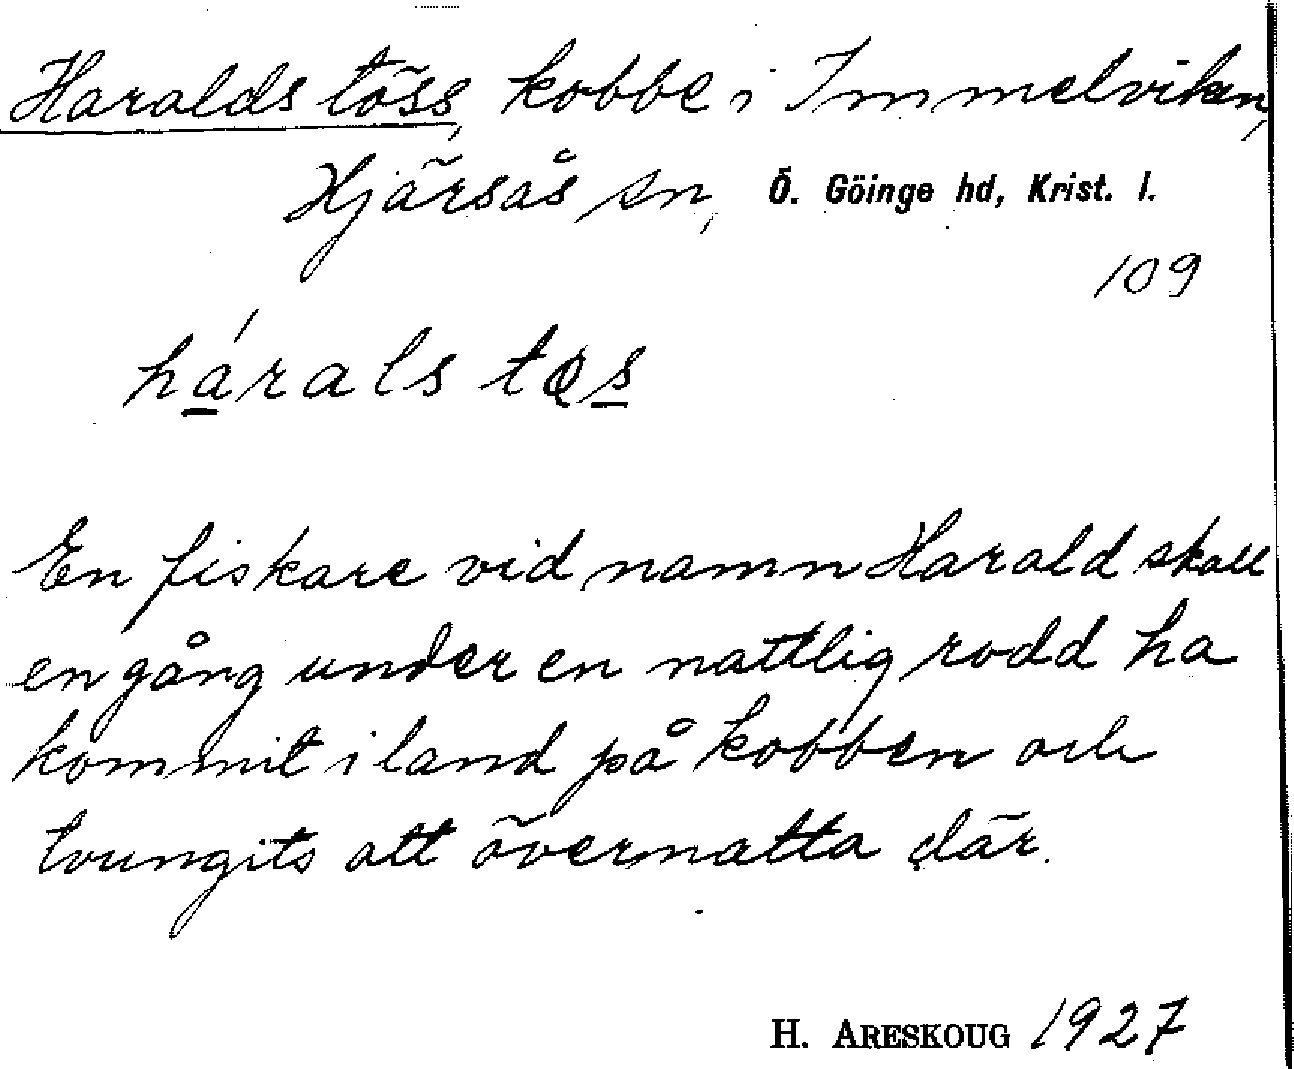 Haralds töss, kobbe i Immelviken,
Hjärsås sn, Ö. Göinge hd, Krist. l.
109
hárals tøs
En fiskare vid namn Harald skall
en gång under en nattlig rodd ha
kommit i land på kobben och
tvungits att övernatta där.
H. ARESKOUG 1927